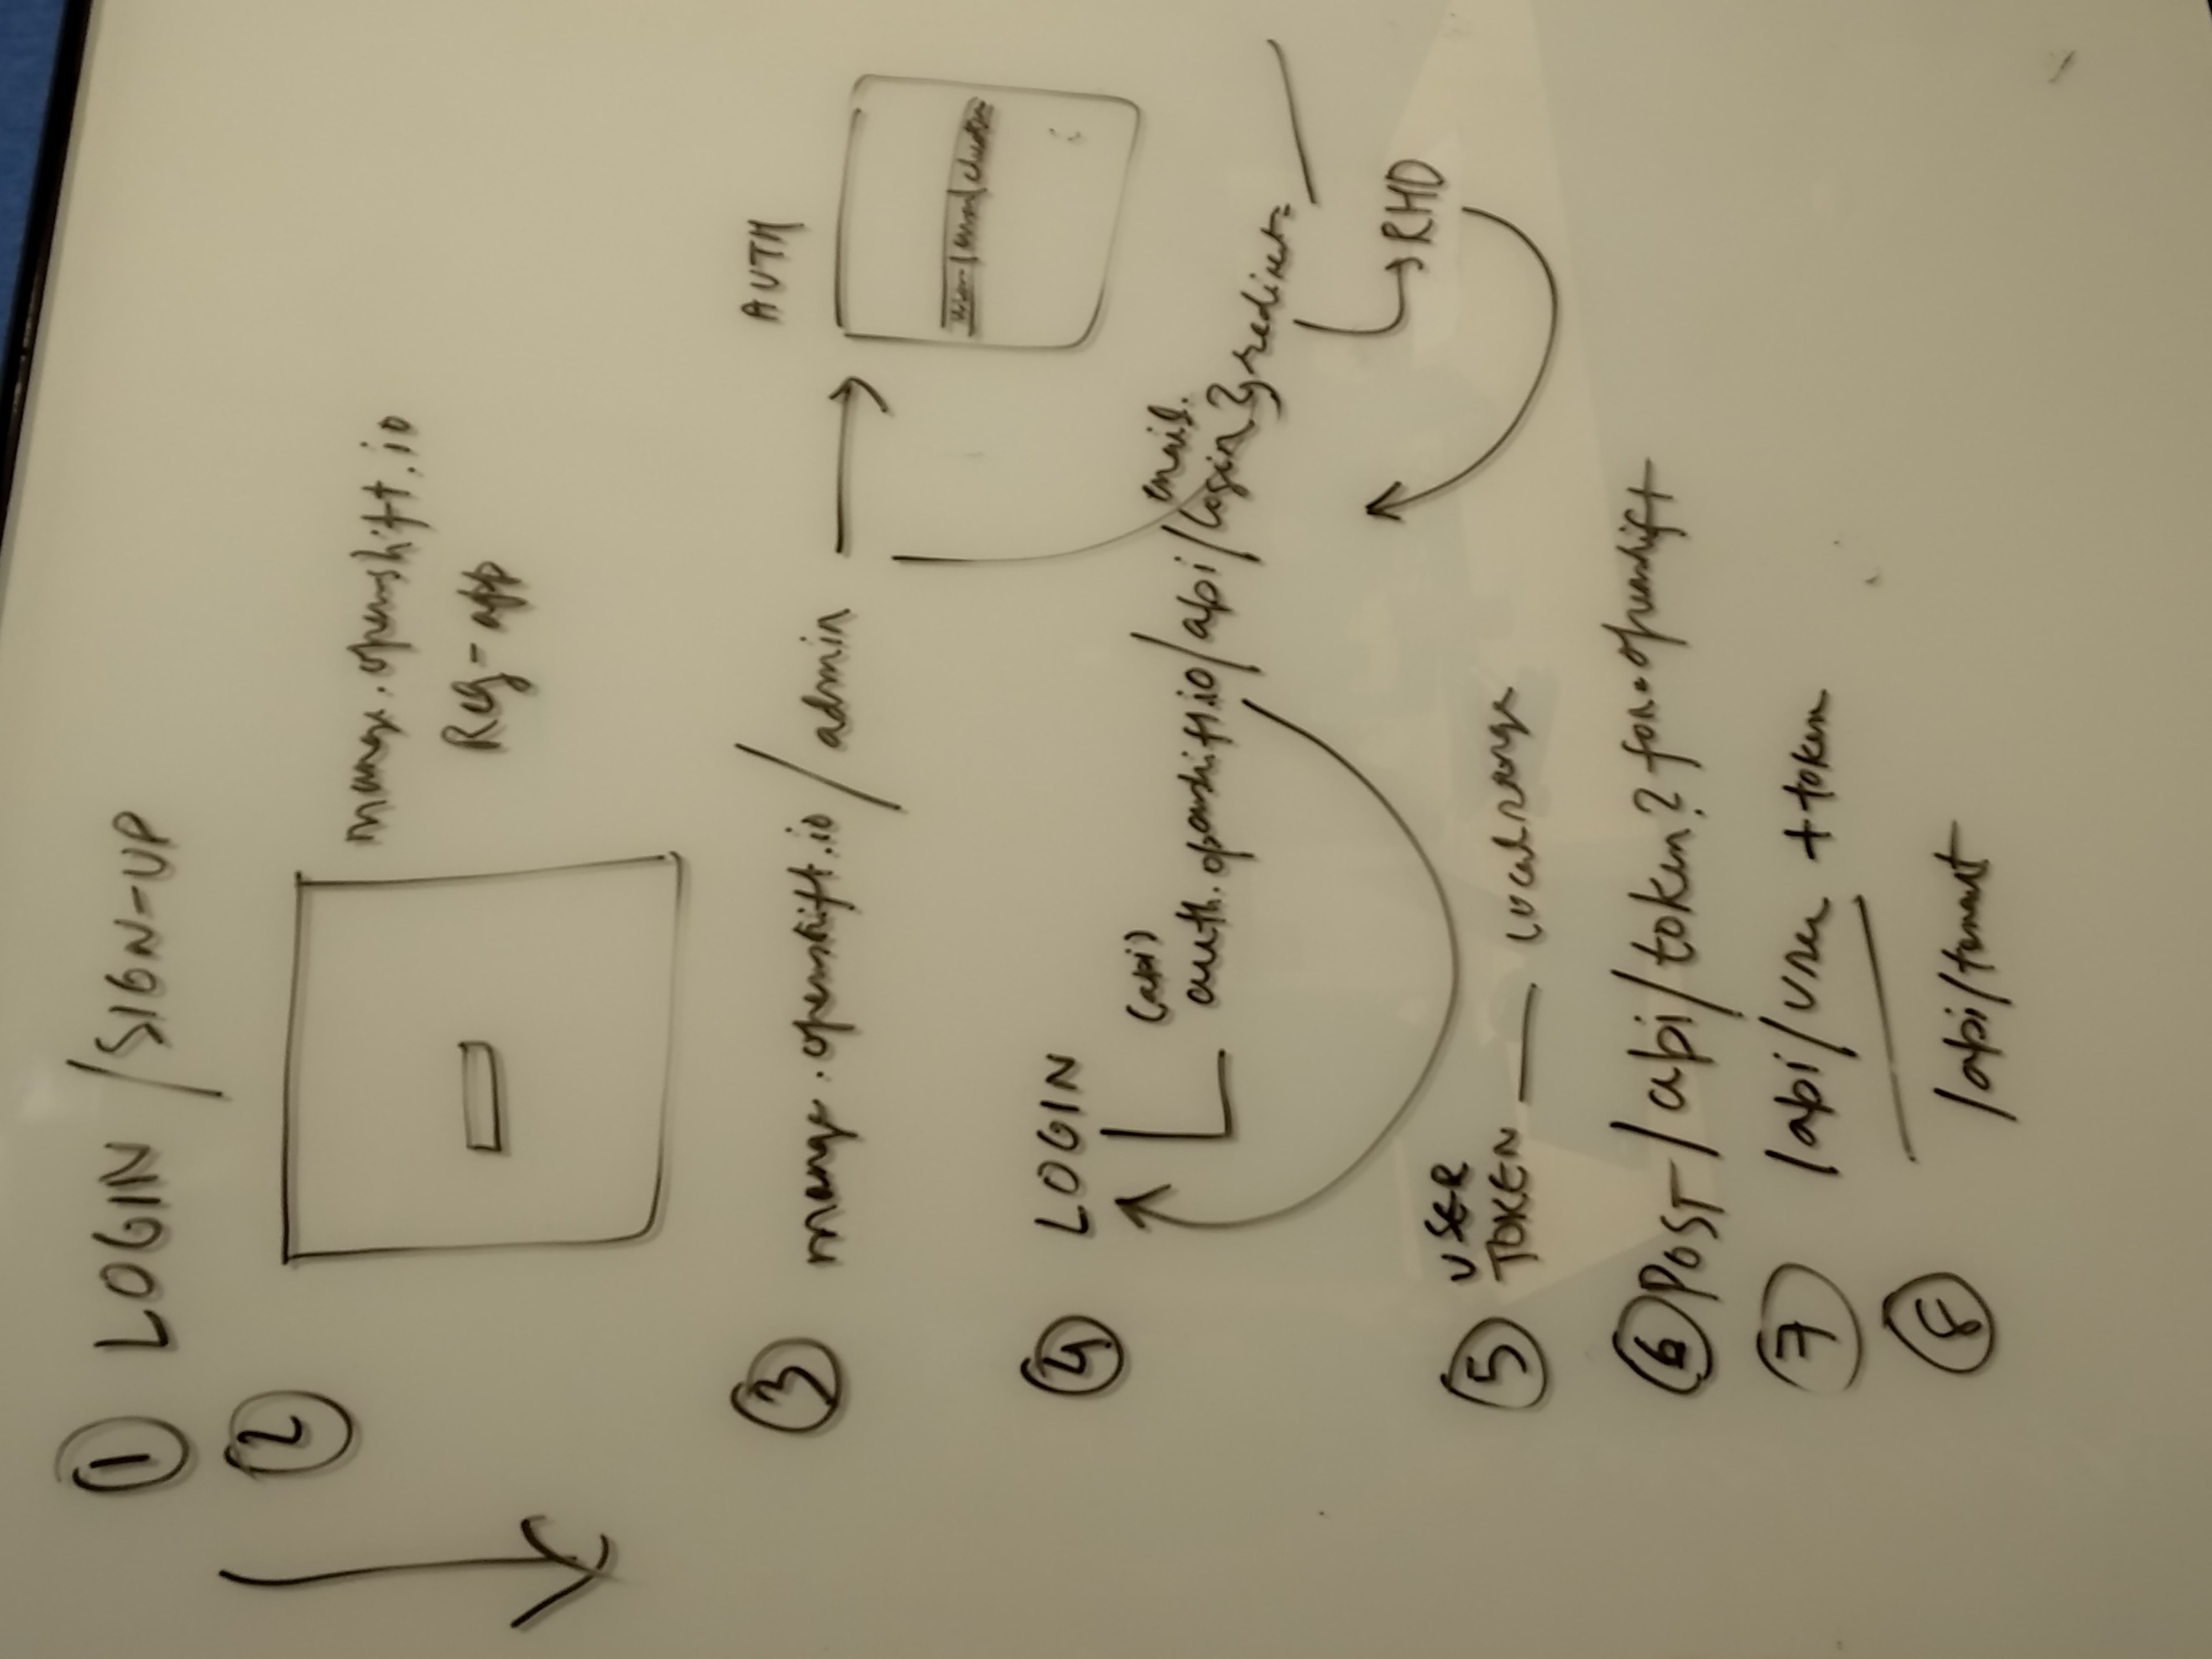 ① LOGIN / SIGN-UP
②
manage.openshift.io
Reg-app
③ manage.openshift.io / admin
AUTH
④ LOGIN
(api)
email.
auth.openshift.io/api/login?redirect=
RHD
⑤ USER
TOKEN —
⑥ POST /api/token?for=openshift
⑦ /api/user + token
⑧ /api/tenant